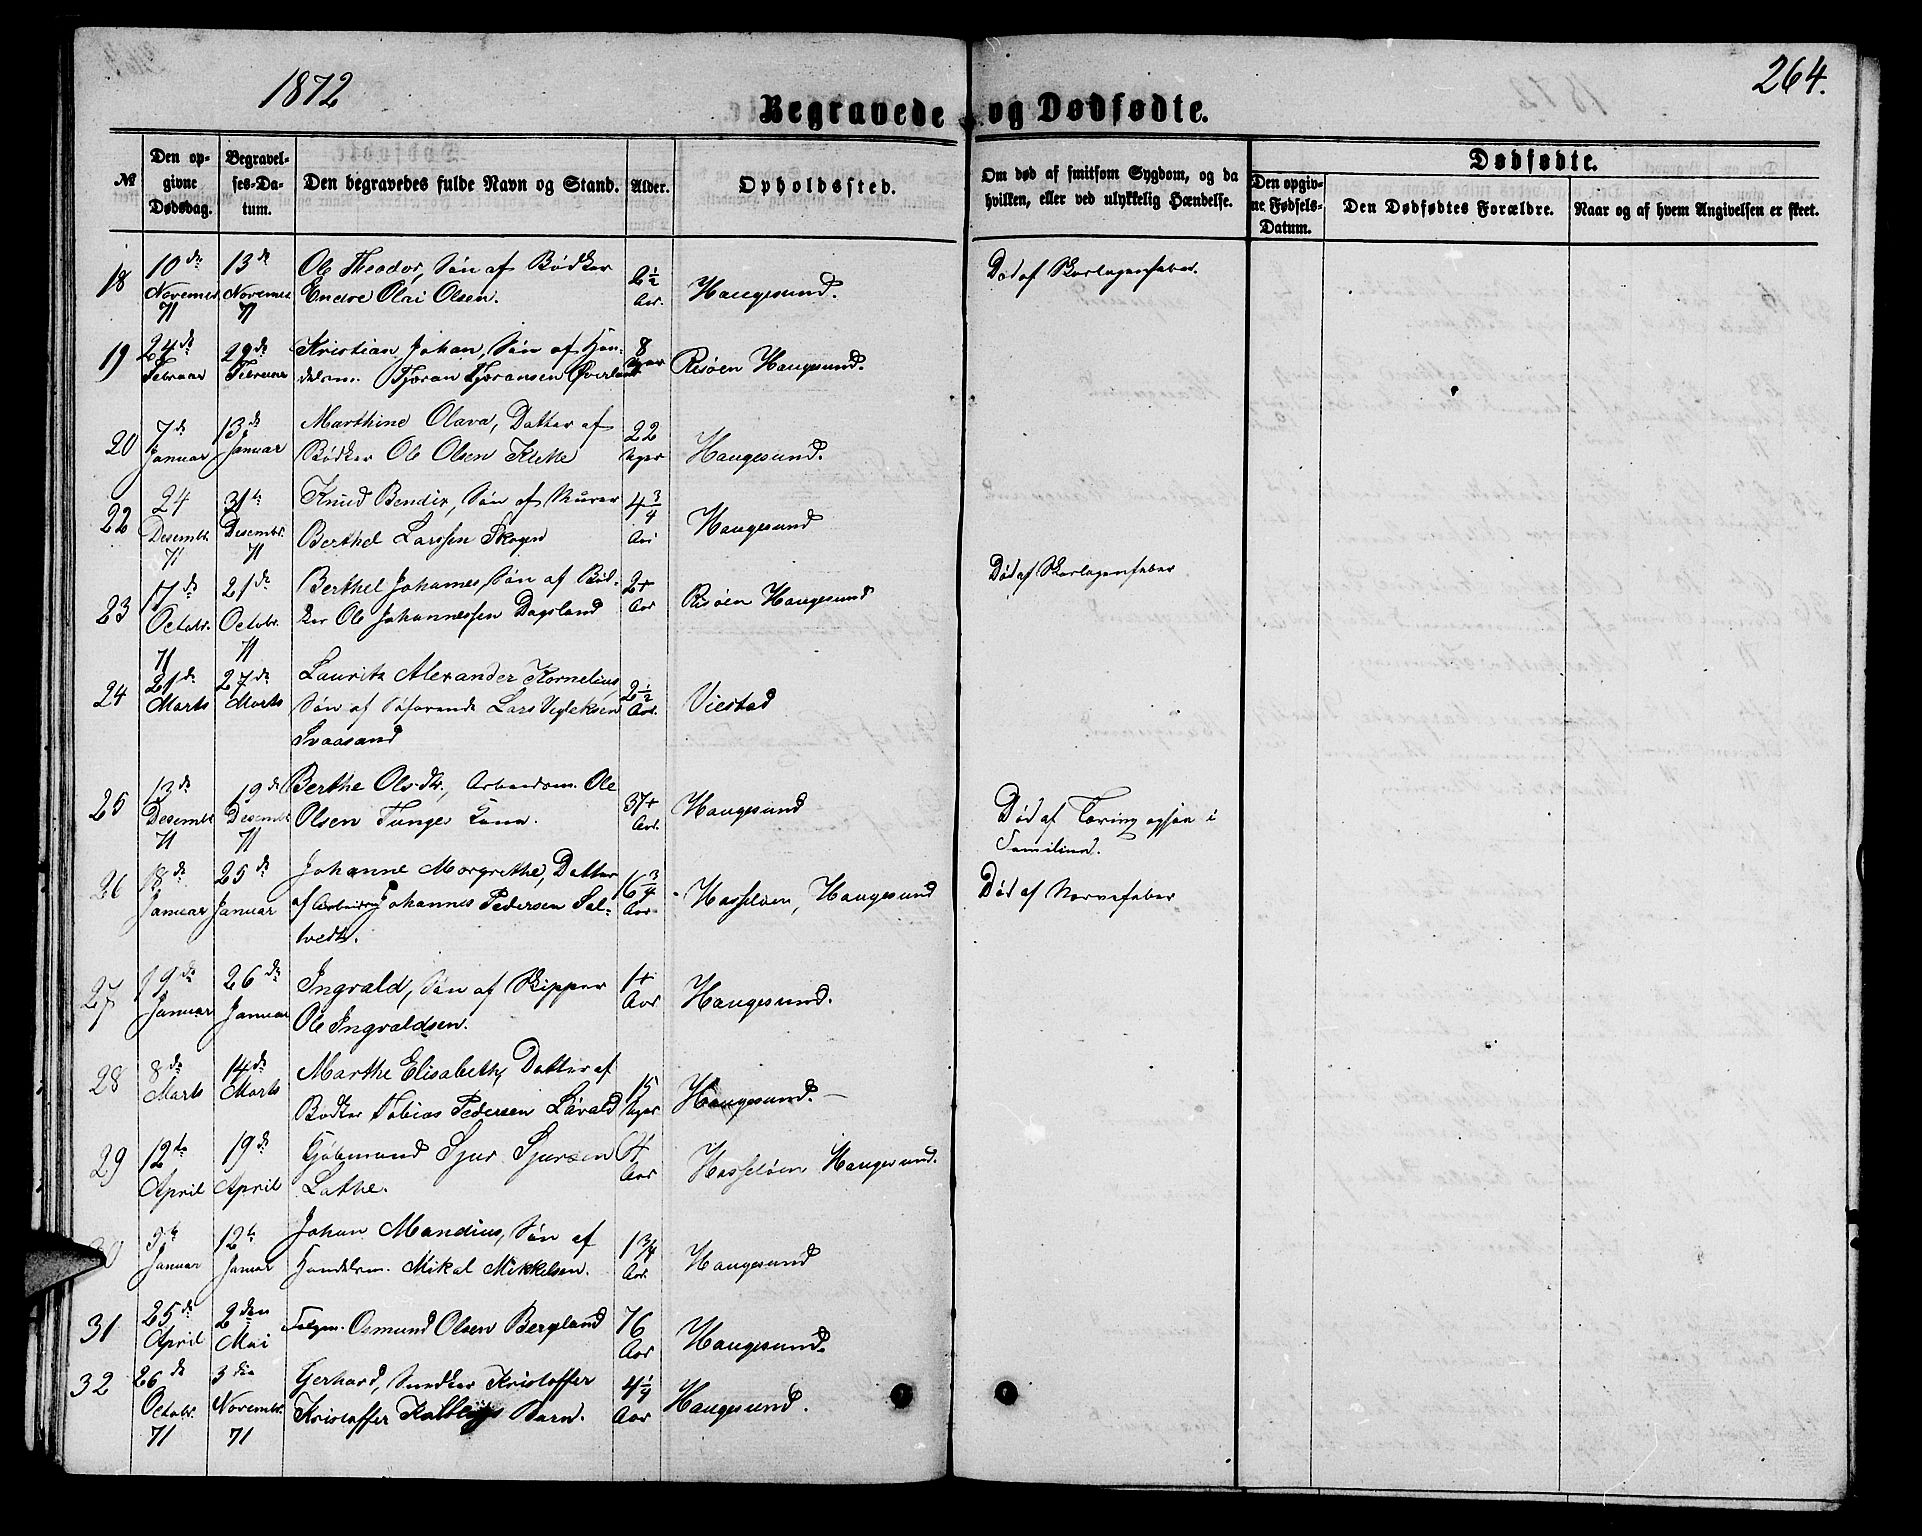 1872
264.
Begravede og Dødfødte.
№
Den op-
givne
Dødsdag.
Begravel-
ses-Da-
tum.
Den begravedes fulde Navn og Stand.
Alder.
Opholdssted.
Om død af smitsom Sygdom, og da
hvilken, eller ved ulykkelig Hændelse.
Dødfødte.
Den opgiv-
ne Fødsels-
Datum.
Den Dødfødtes Forældre.
Naar og af hvem Angivelsen er skeet.
18 10de Novembr 71 13de Novembr 71 Ole Theodor, Søn af Bødker 2½ Aar. Haugesund. Død af Skarlagensfeber.
Endre Olai Olsen.
19 24de Februar 29de Februar Kristian Johan, Søn af Han- 8 Uger Risøen Haugesund.
delsm. Tjøran Tjøransen Øverland
20 7de Januar 13de Januar Marthine Olava, Datter af 22 Uger Haugesund.
Bødker Ole Olsen
22 24 Desembr. 71 31te Desembr. 71 Knud Bendix, Søn af Murer 4¾ Aar Haugesund
Berthel Larssen Skogen
23 17de Octobr. 71 21de Octobr. 71 Berthel Johannes, Søn af Bød- 2+ Aar Risøen Haugesund Død af Skarlagensfeber
ker Ole Johannessen Dagsland
24 21de Marts 27de Marts Lauritz Alexander Kornelius, 2½ Aar. Viestad
Søn af Søfarende Lars Vigleksen
Svaasand
25 13de Desembr 71 19de Desembr 71 Berthe Olsdtr., Arbeidsm. Ole 37+ Aar. Haugesund Død af Tæring ogsaa i
Olsen Tunges Kone. Familien.
26 18de Januar 25de Januar Johanne Morgrethe, Datter 6¾ Aar Hasseløen, Haugesund Død af Nervefeber
af Arbeidsm Johannes Pedersen Sal-
vedt.
27 19de Januar 26de Januar Ingvald, Søn af Skipper 1+ Aar Haugesund.
Ole Ingvaldsen.
28 8de Marts 14de Marts Marthe Elisabeth, Datter af 15 Uger Haugesund.
Bødker Tobias Pedersen Løvald
29 12te April 19de April Kjøbmand Sjur Sjursen Aar Hasseløen Haugesund.
Lothe.
30 5te Januar 12te Januar Johan Mandius, Søn af 1¾ Aar. Haugesund
Handelsm. Mikal Mikkelsen.
31 25de April 2den Mai Osmund Olsen Bergland 76 Aar Haugesund.
32 26de Octobr. 71 3die Novembr. 71 Gerhard, Snedker Kristoffer 4¼ Aar Haugesund.
Kristoffer Barn.